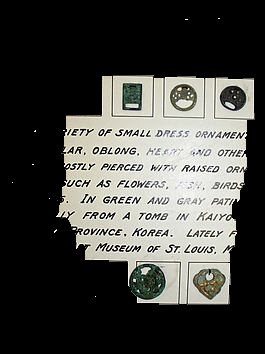 RIETY OF SMALL DRESS ORNAMENT
LAR, OBLONG, HEART AND OTHE
OSTLY PIERCED WITH RAISED ORN
SUCH AS FLOWERS, FISH, BIRDS
S. IN GREEN AND GRAY PATI
LY FROM A TOMB IN KAIYO
PROVINCE, KOREA. LATELY F
T MUSEUM OF ST. LOUIS, M